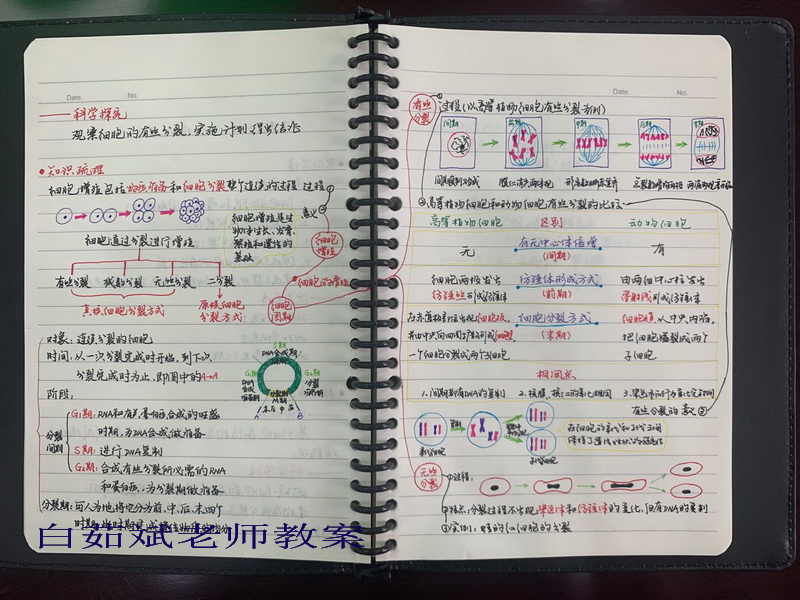 Date. No.
科学探究
观察细胞的有丝分裂,实施计划得出结论
•知识梳理
细胞增殖包括物质准备和细胞分裂整个连续的过程 过程
细胞增殖是生
物体生长、发育、
繁殖和遗传的
基础
意义
细胞
增殖
细胞通过分裂进行增殖
有丝分裂 减数分裂 无丝分裂 二分裂
真核细胞分裂方式
原核细胞
分裂方式
细胞
周期
对象:连续分裂的细胞
时间:从一次分裂完成时开始,到下一次
分裂完成时为止,即图中的A→A
阶段:
S期
DNA合成期
G₁期
G₂期
DNA
合成
分裂期
M期
末 后 中 前
A
B
分裂
间期
G₁期:RNA和有关蛋白质合成的旺盛
时期,为DNA合成做准备
S期:进行DNA复制
G₂期:合成有丝分裂所必需的RNA
和蛋白质,为分裂期做准备
分裂期:可人为地将它分为前、中、后、末四个
时期
白茹斌老师教案
Date. No.
有丝
分裂
①过程(以高等植物细胞有丝分裂为例)
间期 前期 中期 后期 末期
②高等植物细胞和动物细胞有丝分裂的比较
高等植物细胞 区别 动物细胞
无 有无中心体倍增 有
(间期)
细胞两极发出 纺锤体形成方式 由两组中心粒发出
纺锤丝形成纺锤体 (前期) 星射线形成纺锤体
在赤道板位置出现细胞板, 细胞分裂方式 细胞膜从中央内陷,
并由中央向四周扩展形成细胞壁, (末期) 把细胞缢裂成两个
一个细胞分裂成两个子细胞 子细胞
相同点
1.间期都有DNA的复制 2.核膜、核仁的变化相同 3.染色体的行为变化完全相同
有丝分裂的意义③
间期
分裂期
亲代细胞
子代细胞
在细胞的亲代和子代之间
保持了遗传性状的稳定性
无丝
分裂
①过程:
②特点:分裂过程不出现染色体和纺锤体的变化,但有DNA的复制
③实例:蛙的红细胞的分裂